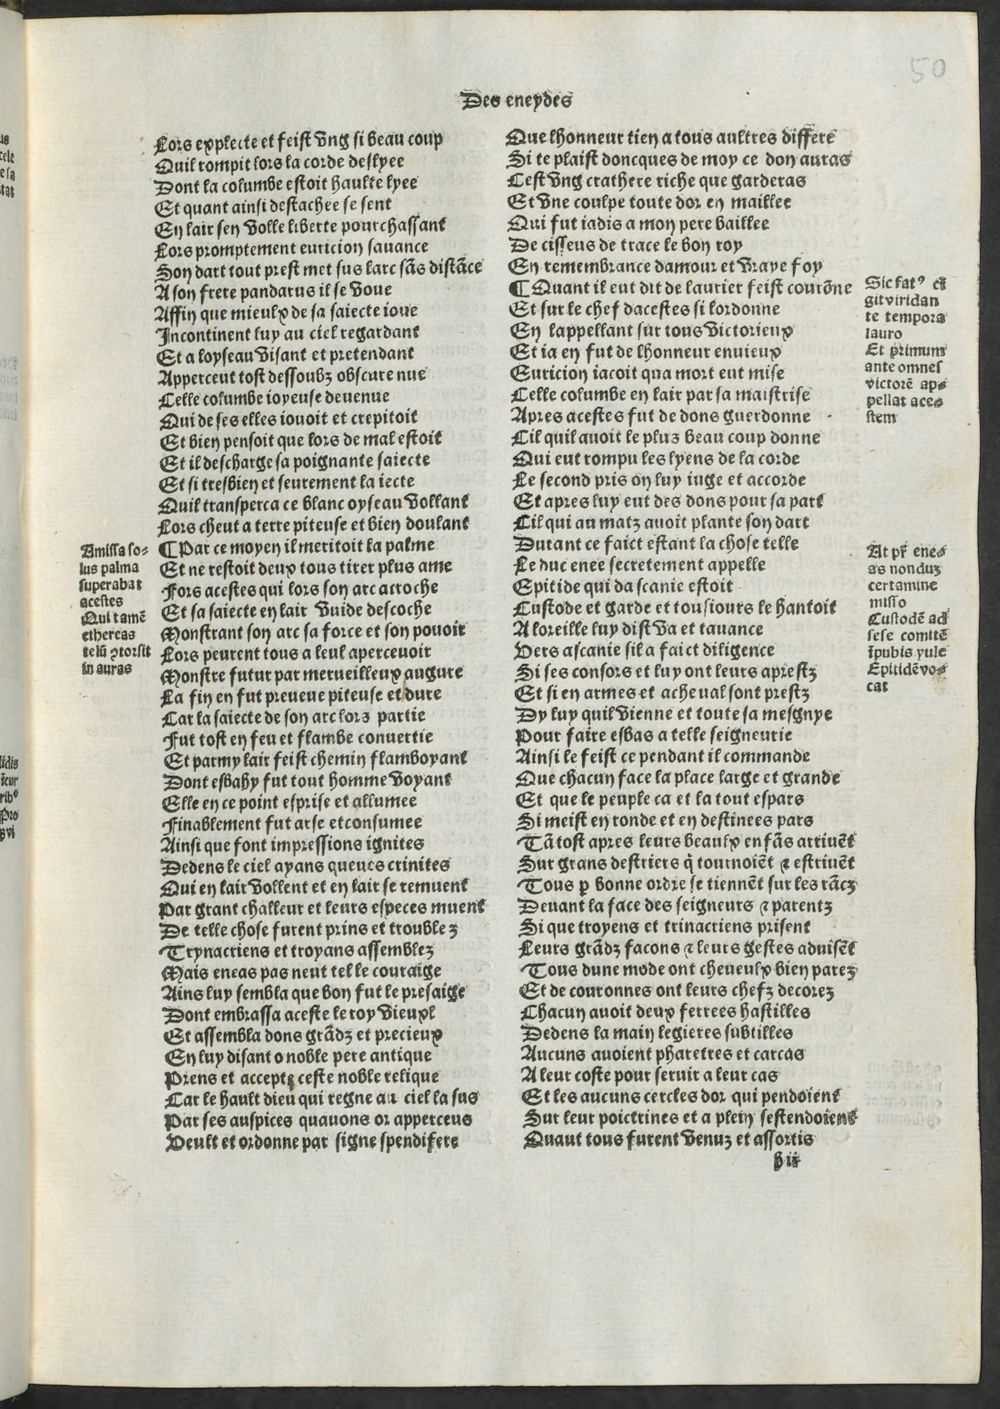 50
Des eneydes
Lors explecte et feist vng si beau coup
Quil rompit lors la corde deslyee
Dont la columbe estoit haulte lyee
Et quant ainsi destachee se sent
En lair sen volle liberte pourchassant
Lors promptement euricion sauance
Son dart tout prest met sus larc sãs distãce
A son frere pandarus il se voue
Affin que mieulx de sa saiecte ioue
Incontinent luy au ciel regardant
Et a loyseau visant et pretendant
Apperceut tost dessoubz obscure nue
Celle columbe ioyeuse deuenue
Qui de ses elles iouoit et crepitoit
Et bien pensoit que lors de mal estoit
Et il descharge sa poignante saiecte
Et si tresbien et seurement la iecte
Quil transperca ce blanc oyseau vollant
Lors cheut a terre piteuse et bien doulant
¶Par ce moyen il meritoit la palme
Et ne restoit deux tous tirer plus ame
Fors acestes qui lors son arc acroche
Et sa saiecte en lair vuide descoche
Monstrant son arc sa force et son pouoir
Lors peurent tous a leul aperceuoir
Monstre futur par merueilleux augure
La fin en fut preueue piteuse et dure
Car la saiecte de son arc lors partie
Fut tost en feu et flambe conuertie
Et parmy lair feist chemin flamboyant
Dont esbahy fut tout homme voyant
Elle en ce point esprise et allumee
Finablement fut arse et consumee
Ainsi que font impressions ignites
Dedens le ciel ayans queues crinites
Qui en lair vollent et en lair se remuent
Par grant challeur et leurs especes muent
De telle chose furent prins et troublez
Trynacriens et troyans assemblez
Mais eneas pas neut tel le couraige
Ains luy sembla que bon fut le presaige
Dont embrassa aceste le roy vieuxl
Et assembla dons grãdz et precieux
En luy disant o noble pere antique
Prens et accepte ceste noble relique
Car le hault dieu qui regne au ciel la sus
Par ses auspices quauons or apperceus
Veult et ordonne par signe spendifere
Amissa so-
lus palma
superabat
acestes
Qui tamẽ
ethereas
telũ ꝯtorsit
in auras
Que lhonneur tien a tous aultres differe
Si te plaist doncques de moy ce don auras
Cest vng crathere riche que garderas
Et vne coulpe toute dor en maillee
Qui fut iadis a mon pere baillee
De cisseus de trace le bon roy
En remembrance damour et vraye foy
¶Quant il eut dit de laurier feist courõne
Et sur le chef dacestes si lordonne
En lappellant sur tous victorieux
Et ia en fut de lhonneur enuieux
Euricion iacoit qua mort eut mise
Celle columbe en lair par sa maistrise
Apres acestes fut de dons guerdonne
Cil quil auoit le plus beau coup donne
Qui eut rompu les lyens de la corde
Le second pris on luy iuge et accorde
Et apres luy eut des dons pour sa part
Cil qui au matz auoit plante son dart
Durant ce faict estant la chose telle
Le duc enee secretement appelle
Epitide qui da scanie estoit
Custode et garde et tousiours le hantoit
A loreille luy dist va et tauance
Vers ascanie sil a faict diligence
Si ses consors et luy ont leurs aprestz
Et si en armes et a cheual sont prestz
Dy luy quil vienne et toute sa mesgnye
Pour faire esbas a telle seigneurie
Ainsi le feist ce pendant il commande
Que chacun face la place large et grande
Et que le peuple ca et la tout espars
Si meist en ronde et en destinees pars
Tãtost apres leurs beaulx enfãs arriuẽt
Sur grans destriers q̃ tournoiẽt ⁊ estriuẽt
Tous ꝑ bonne ordre se tiennẽt sur les rãcz
Deuant la face des seigneurs ⁊ parentz
Si que troyens et trinacriens prisent
Leurs grãdz facons ⁊ leurs gestes aduisẽt
Tous dune mode ont cheueulx bien parez
Et de couronnes ont leurs chefz decorez
Chacun auoit deux ferrees hastilles
Dedens la main legieres subtilles
Aucuns auoient pharetres et carcas
A leur coste pour seruir a leur cas
Et les aucuns cercles dor qui pendoient
Sur leur poictrines et a plein sestendoient
Quant tous furent venuz et assortis
Sic fatꝰ cĩ
git viridan
te tempora
lauro
Et primum
ante omnes
victorẽ ap-
pellat ace-
stem
At pr̃ ene-
as nonduz
certamine
misso
Custodẽ ad
sese comitẽ
ĩpubis yule
Epitidẽ vo-
cat
h ii